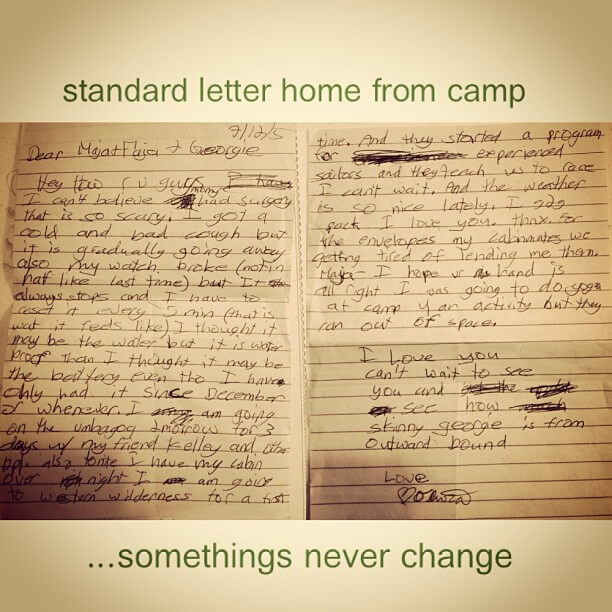 standard letter home from camp
7/12/5
Dear Maja + Flaja + Georgie
Hey How r u guys
I can't believe mommy had surgery
that is so scary. I got a
cold and bad cough but
it is gradually going away
also my watch broke (not in
half like last time) but It
always stops and I have to
reset it every 5 min (that is
wat it feels like) I thought it
may be the water but it is water
proof than I thought it may be
the battery even tho I have
only had it since December
or whenever. I am going
on the 2morrow for 3
days w/ my friend Kelley and other
ppl. also tonite I have my cabin
over night I am going
to western wilderness for a first
time. And they started a program
for experienced
sailors and they teach us to race
I can't wait. And the weather
is so nice lately. I
pack I love you. thnx. for
the envelopes my cabinmates we
getting tired of lending me them.
Maja- I hope ur hand is
all right I was going to do yoga
at camp 4 an activity but they
ran out of space.
I Love you
can't wait to see
you and
see how
skinny george is from
outward bound
Love
...somethings never change